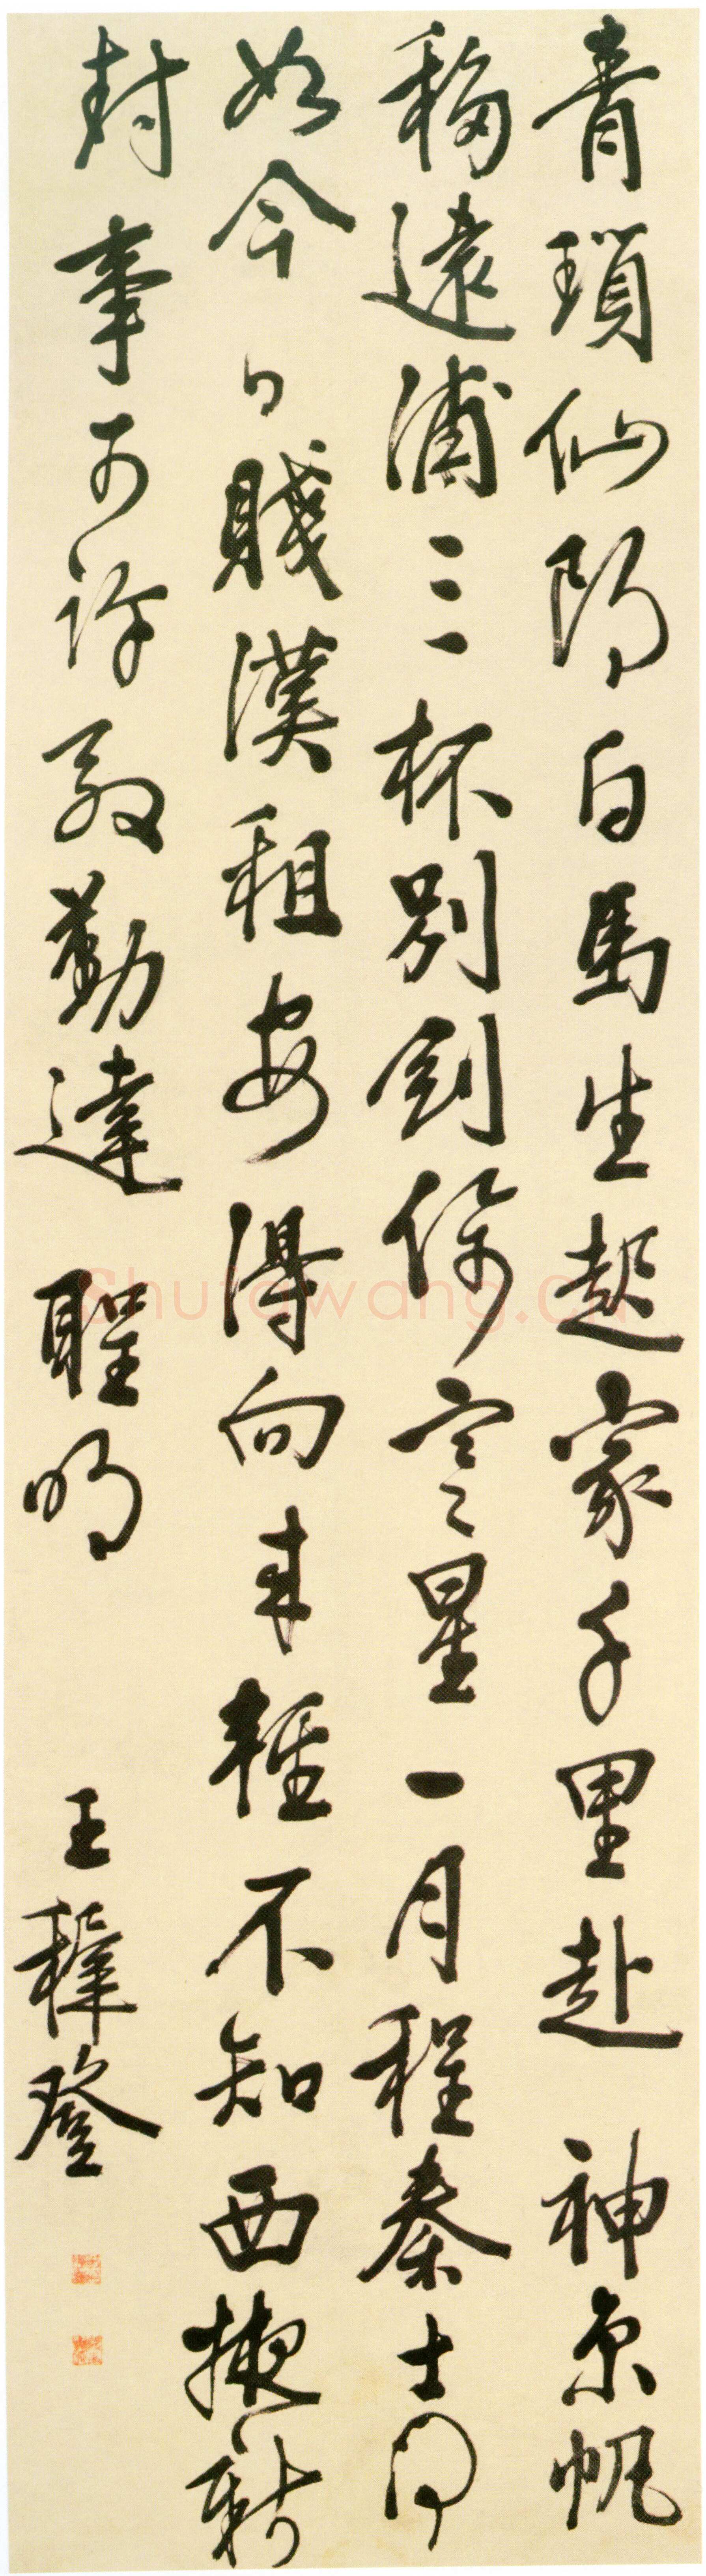 青瑣仙郎白馬生起家千里赴神京帆
移遠浦三杯別劍倚寒星一月程秦士何
如今日賤漢租安得向來輕不知西掖新
封事可許殷勤達聖明
王穉登
Shufawang.Cn